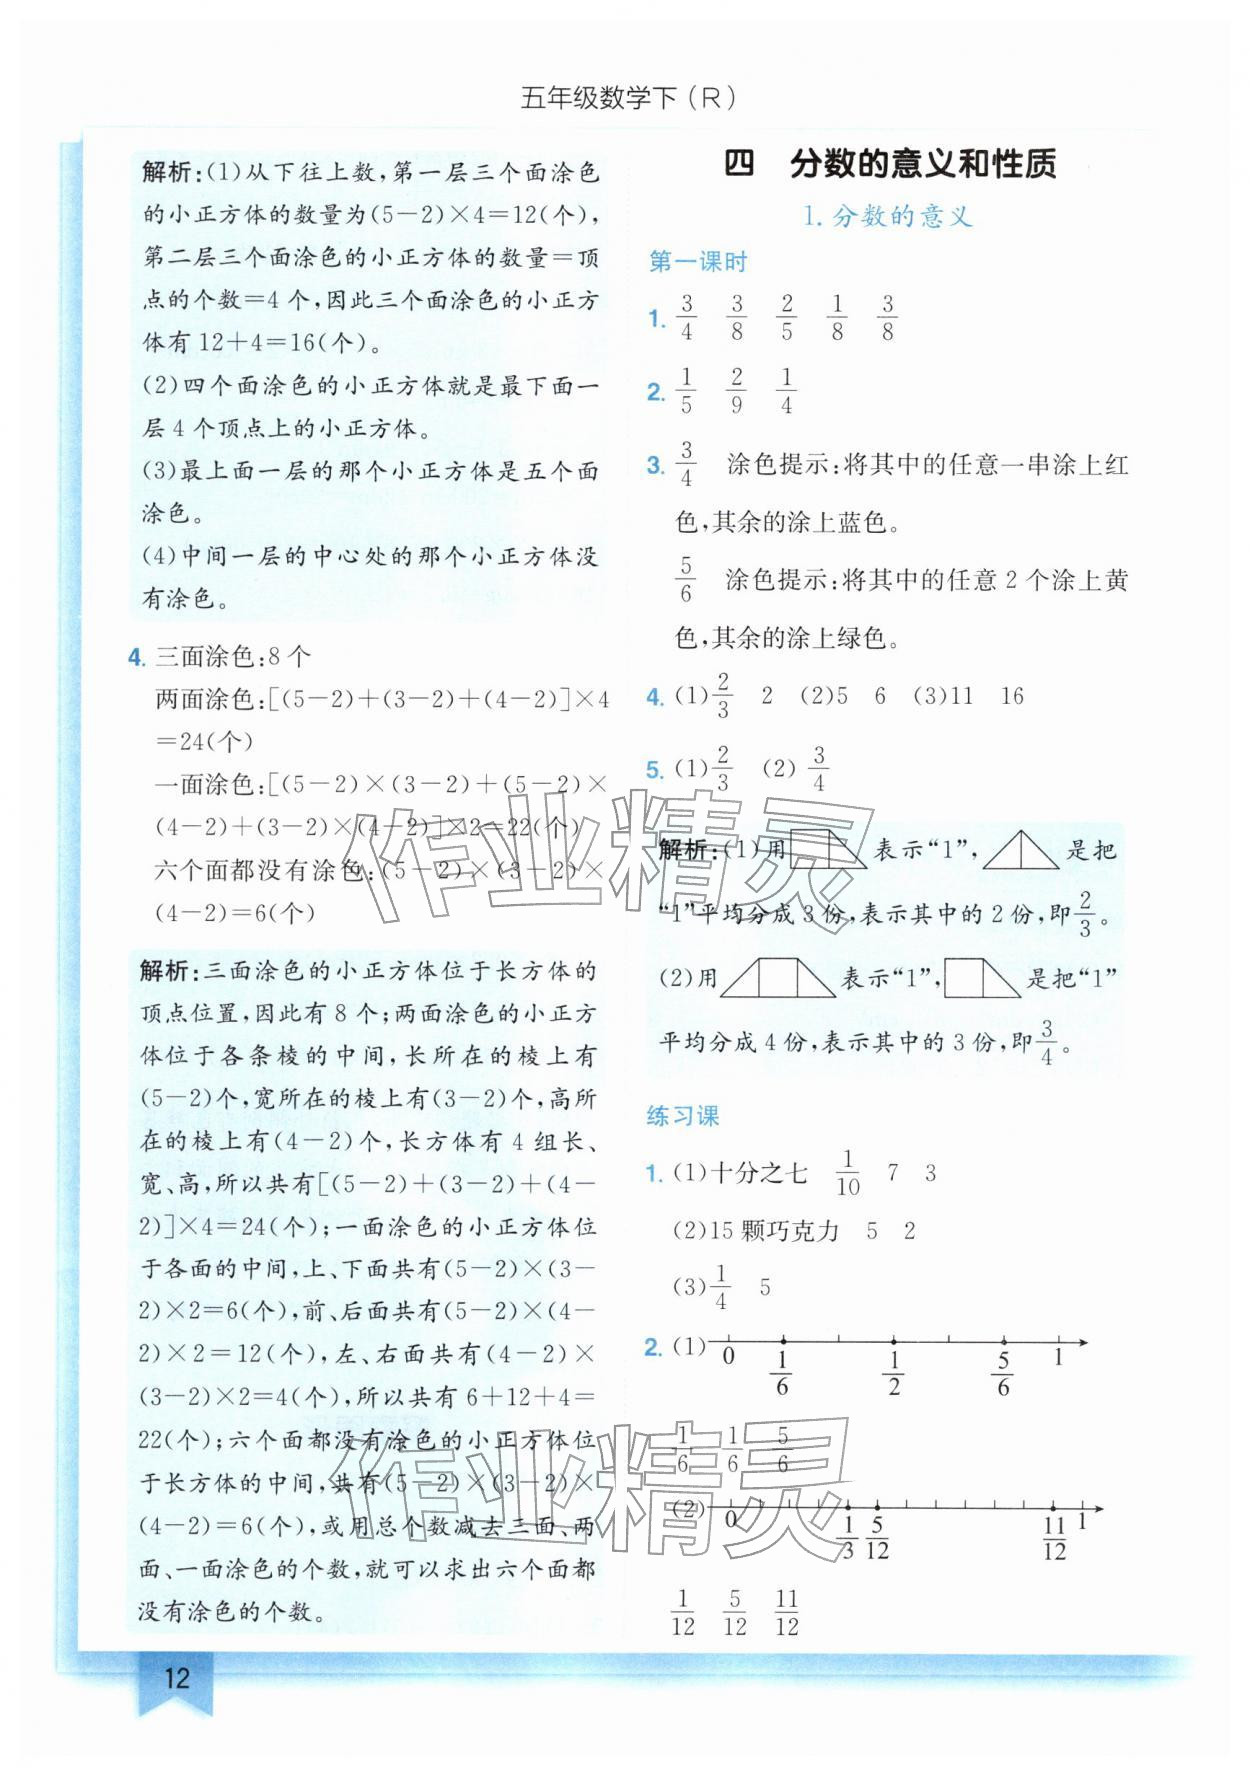 五年级数学下(R)
解析:(1)从下往上数,第一层三个面涂色
的小正方体的数量为(5-2)×4=12(个),
第二层三个面涂色的小正方体的数量=顶
点的个数=4个,因此三个面涂色的小正方
体有12+4=16(个)。
(2)四个面涂色的小正方体就是最下面一
层4个顶点上的小正方体。
(3)最上面一层的那个小正方体是五个面
涂色。
(4)中间一层的中心处的那个小正方体没
有涂色。
4. 三面涂色:8个
两面涂色:[(5-2)+(3-2)+(4-2)]×4
=24(个)
一面涂色:[(5-2)×(3-2)+(5-2)×
(4-2)+(3-2)×(4-2)]×2=22(个)
六个面都没有涂色:(5-2)×(3-2)×
(4-2)=6(个)
解析:三面涂色的小正方体位于长方体的
顶点位置,因此有8个;两面涂色的小正方
体位于各条棱的中间,长所在的棱上有
(5-2)个,宽所在的棱上有(3-2)个,高所
在的棱上有(4-2)个,长方体有4组长、
宽、高,所以共有[(5-2)+(3-2)+(4-
2)]×4=24(个);一面涂色的小正方体位
于各面的中间,上、下面共有(5-2)×(3-
2)×2=6(个),前、后面共有(5-2)×(4-
2)×2=12(个),左、右面共有(4-2)×
(3-2)×2=4(个),所以共有6+12+4=
22(个);六个面都没有涂色的小正方体位
于长方体的中间,共有(5-2)×(3-2)×
(4-2)=6(个),或用总个数减去三面、两
面、一面涂色的个数,就可以求出六个面都
没有涂色的个数。
四 分数的意义和性质
1.分数的意义
第一课时
1. 3/4 3/8 2/5 1/8 3/8
2. 1/5 2/9 1/4
3. 3/4 涂色提示:将其中的任意一串涂上红
色,其余的涂上蓝色。
5/6 涂色提示:将其中的任意2个涂上黄
色,其余的涂上绿色。
4. (1)2/3 2 (2)5 6 (3)11 16
5. (1)2/3 (2) 3/4
解析:(1)用 表示“1”, 是把
“1”平均分成3份,表示其中的2份,即2/3。
(2)用 表示“1”, 是把“1”
平均分成4份,表示其中的3份,即3/4。
练习课
1. (1)十分之七 1/10 7 3
(2)15颗巧克力 5 2
(3)1/4 5
2. (1) 0 1/6 1/2 5/6 1
1/6 1/6 5/6
(2) 0 1/3 5/12 11/12 1
1/12 5/12 11/12
12
作业精灵
作业精灵